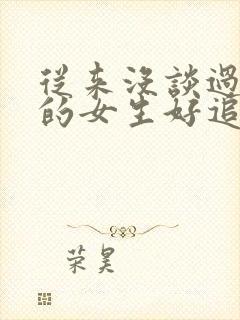 從来沒談過
的女生好追
荣昊